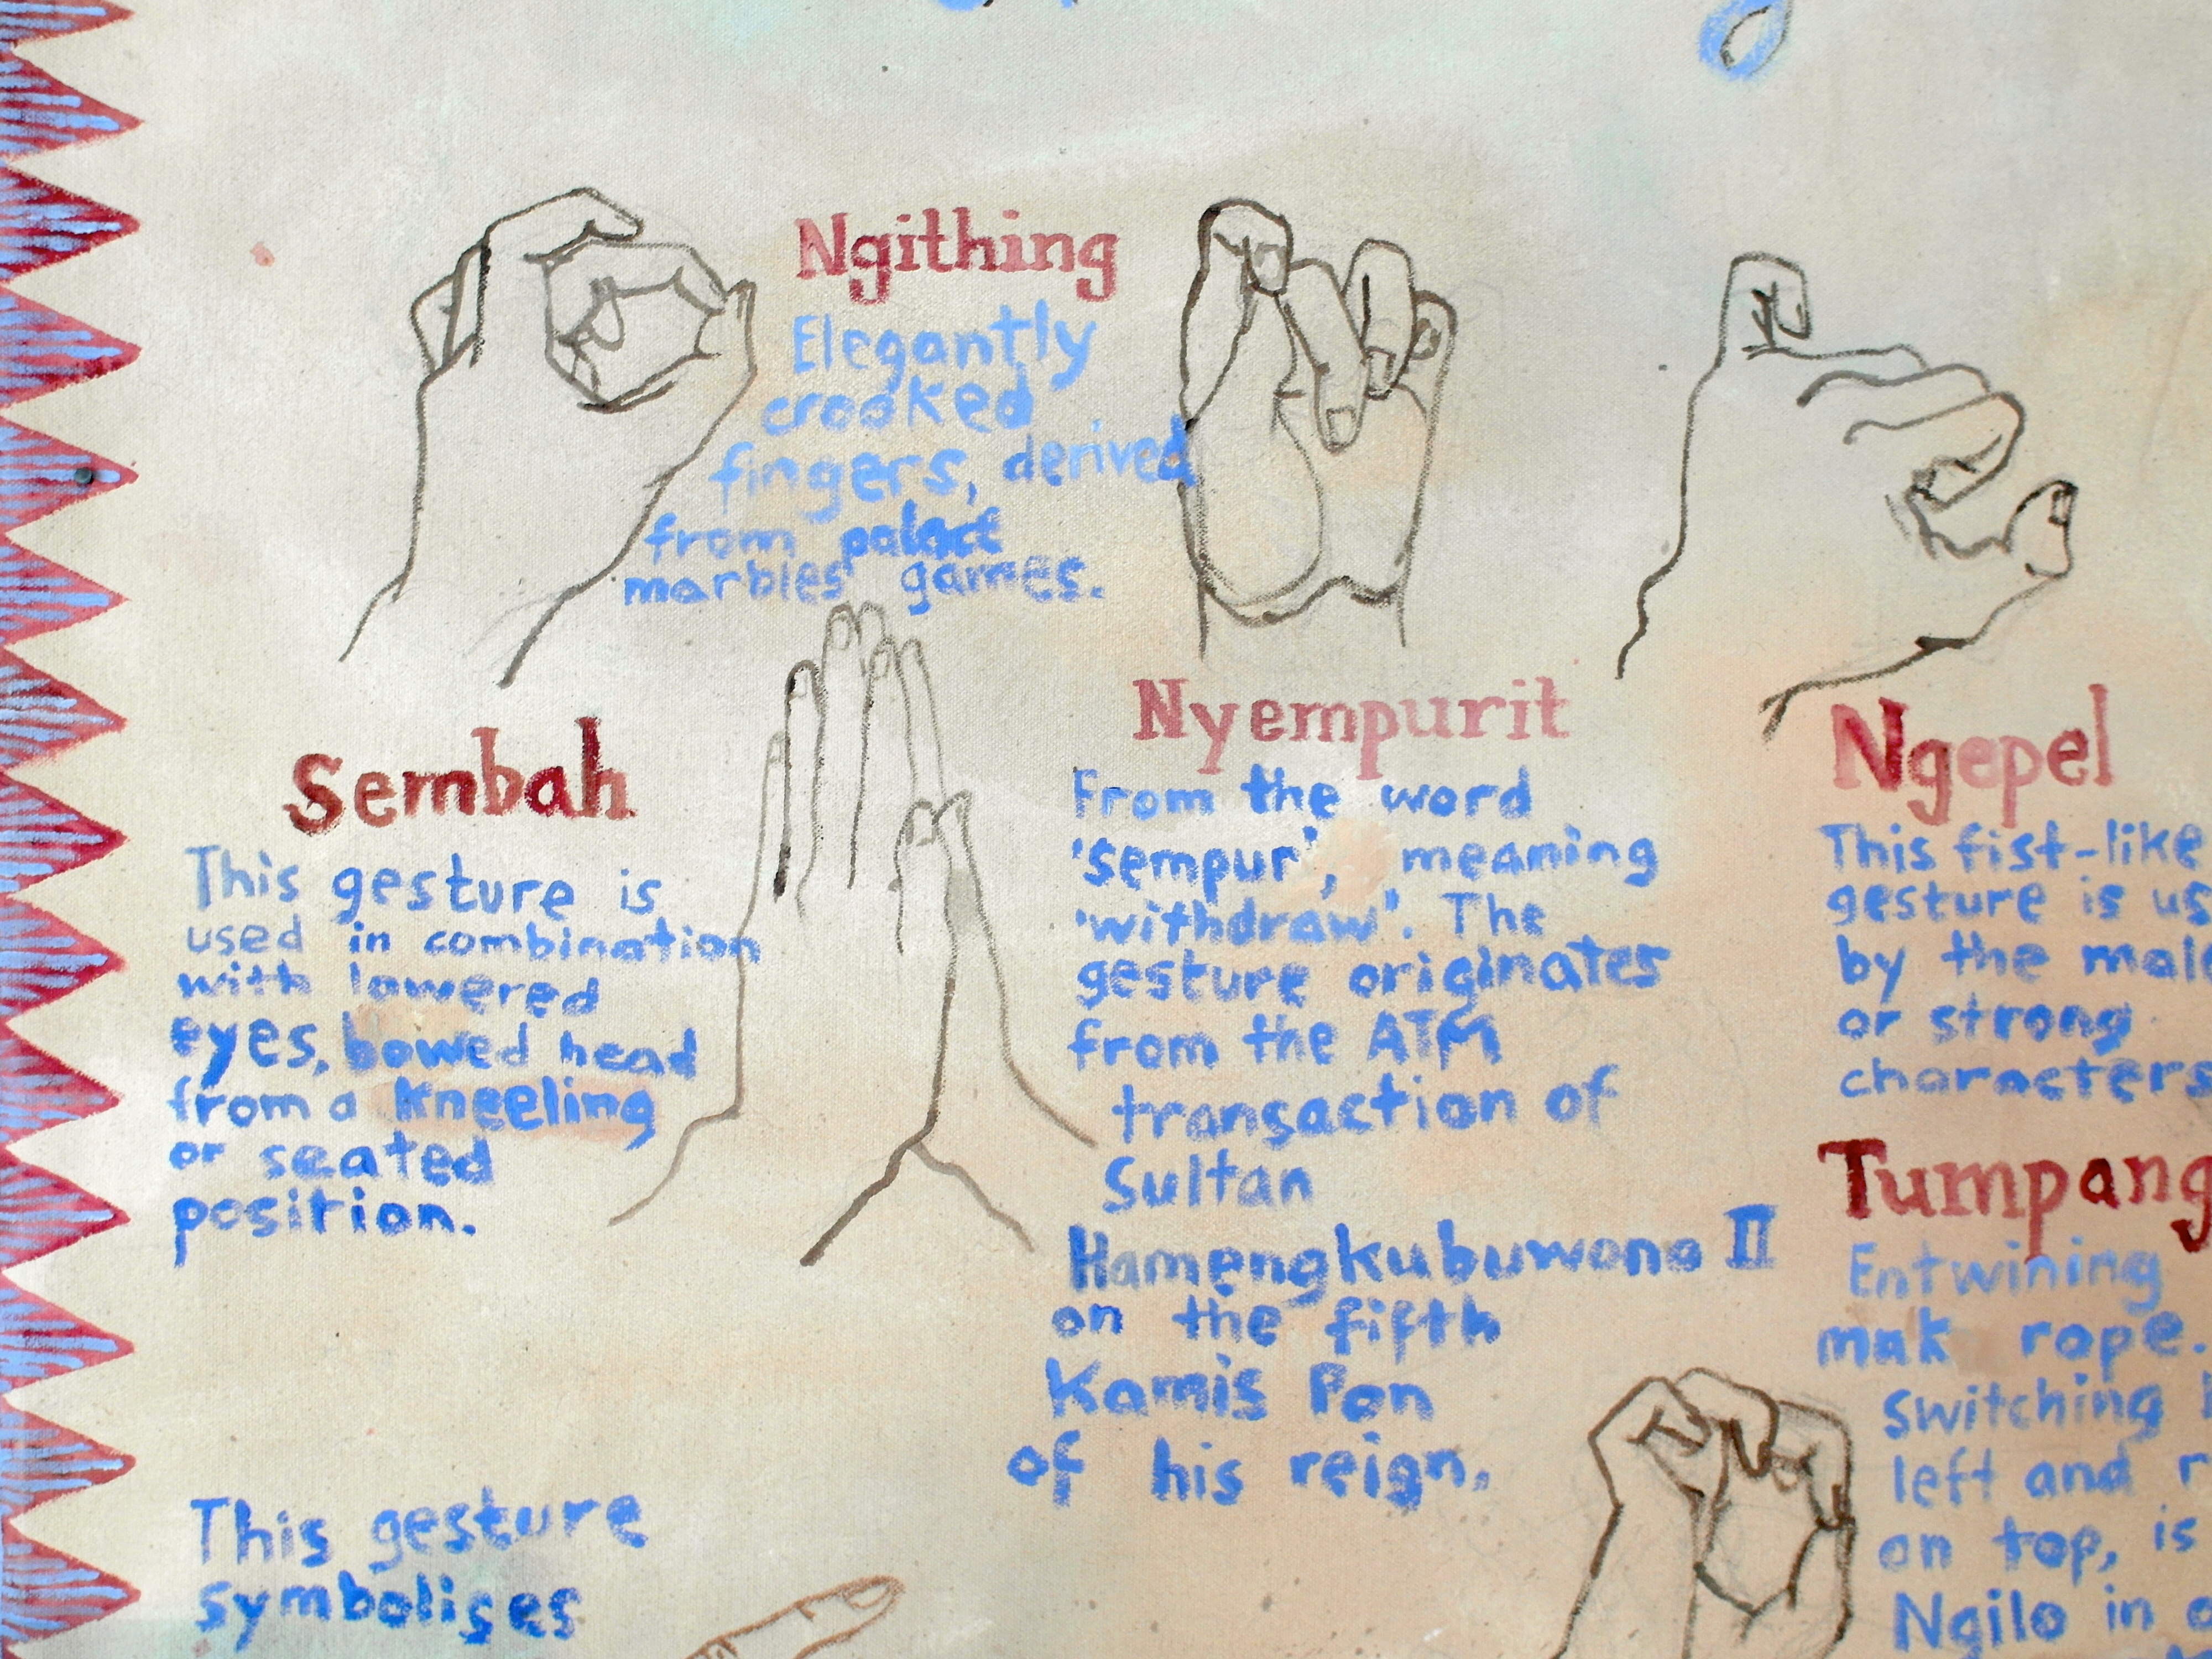 Ngithing
Elegantly
crooked
fingers, derived
from palace
marbles games.
Sembah
This gesture is
used in combination
with lowered
eyes, bowed head
from a kneeling
or seated
position.
Nyempurit
From the word
'sempur', meaning
'withdraw'. The
gesture originates
from the ATM
transaction of
Sultan
Hamengkubuwono II
on the fifth
Kamis Pon
of his reign.
Ngepel
This fist-like
gesture is us
by the male
or strong
characters
Tumpang
Entwining
mnk rope.
Switching
left and r
on top, is
Ngilo in
This gesture
symbolises